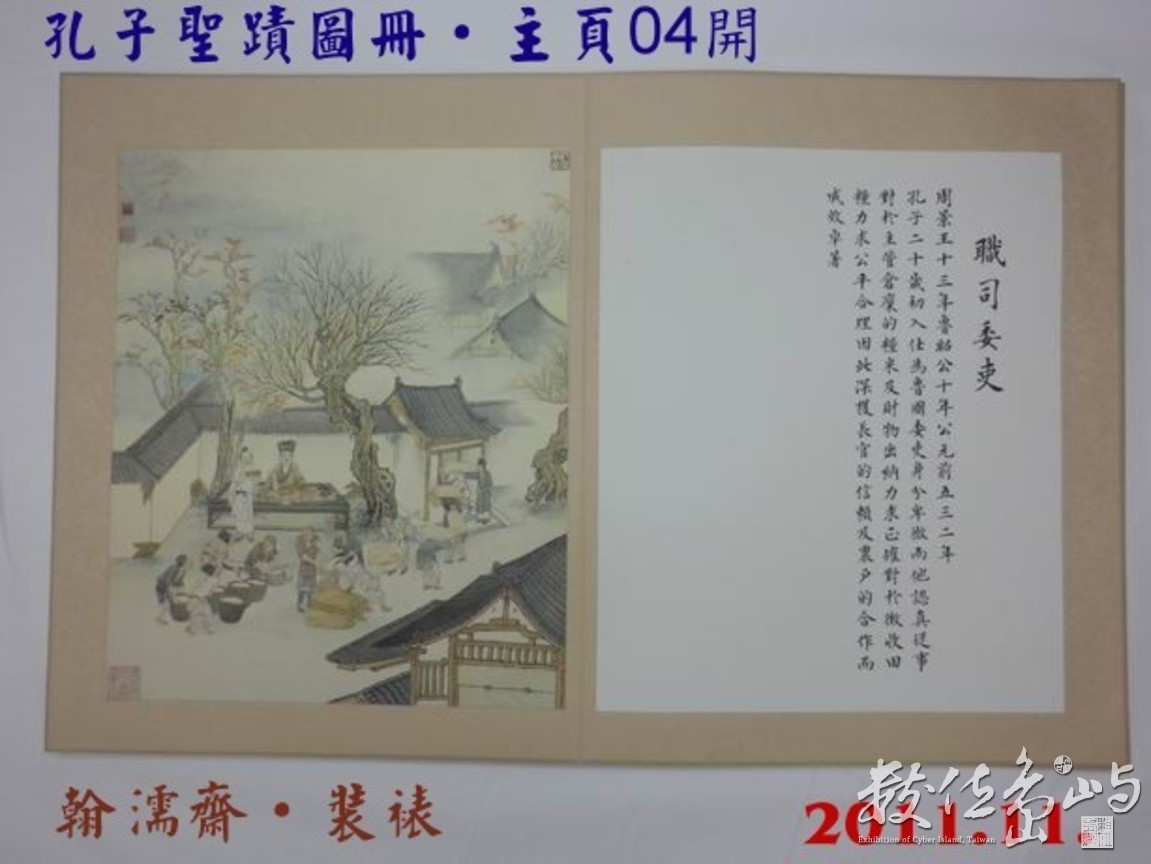 孔子聖蹟圖冊·主頁04開
職司委吏
周景王十三年魯昭公十年公元前五三二年
孔子二十歲初入仕為魯國委吏身分卑微而他認真從事
對於主管倉廩的糧米及財物出納力求正確對於徵收田
糧力求公平合理因此深獲長官的信賴及農戶的合作而
成效卓著
翰濡齋·裝裱
2011.11.
數位島嶼
Exhibition of Cyber Island, Taiwan